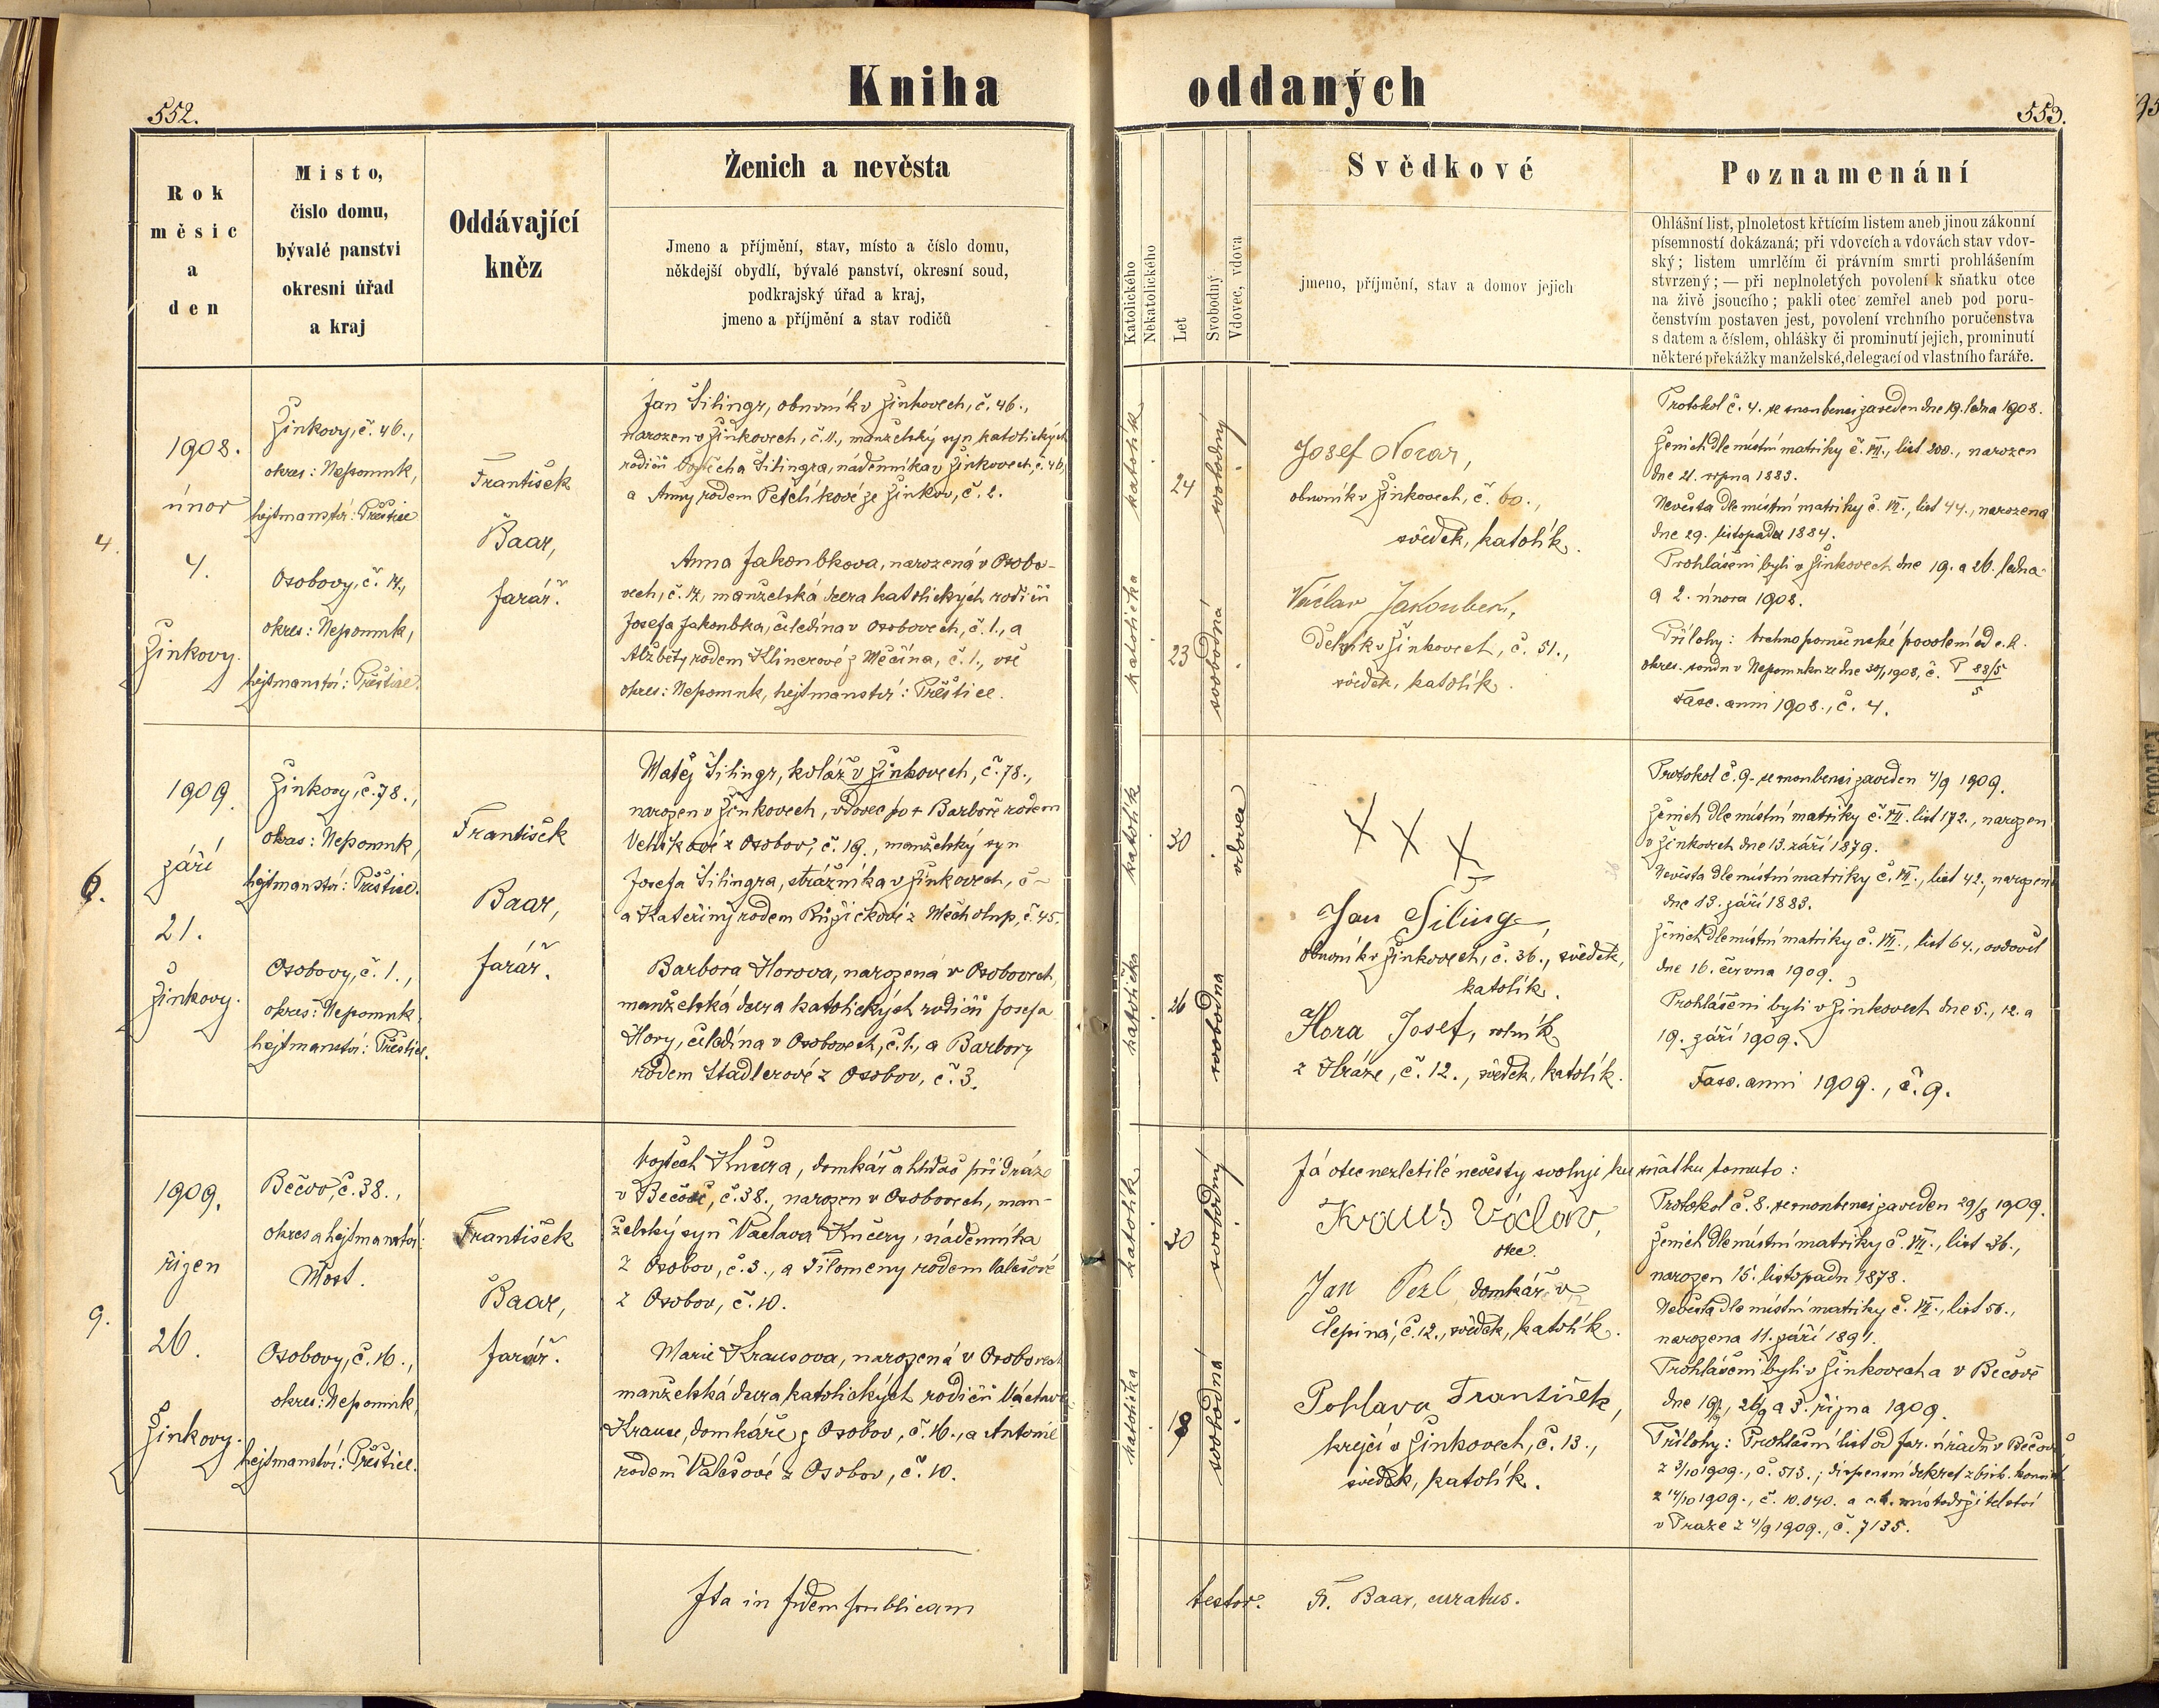 Kniha oddaných
552.
553.
Rok
měsíc
a
den
Místo,
číslo domu,
bývalé panství
okresní úřad
a kraj
Oddávající
kněz
Ženich a nevěsta
Jmeno a příjmění, stav, místo a číslo domu,
někdejší obydlí, bývalé panství, okresní soud,
podkrajský úřad a kraj,
jmeno a příjmění a stav rodičů
Katolického
Nekatolického
Let
Svobodný
Vdovec, vdova
Svědkové
jmeno, příjmění, stav a domov jejich
Poznamenání
Ohlášní list, plnoletost křtícím listem aneb jinou zákonní
písemností dokázaná; při vdovcích a vdovách stav vdov-
ský; listem umrlčím či právním smrti prohlášením
stvrzený; — při neplnoletých povolení k sňatku otce
na živě jsoucího; pakli otec zemřel aneb pod poru-
čenstvím postaven jest, povolení vrchního poručenstva
s datem a číslem, ohlášky či prominutí jejich, prominutí
některé překážky manželské, delegací od vlastního faráře.
4.
1908.
únor
4.
Žinkovy.
Žinkovy, č. 46.,
okres: Nepomuk,
hejtmanství: Přeštice
Osobovy, č. 14.,
okres: Nepomuk,
hejtmanství: Přeštice.
František
Baar,
farář.
Jan Šilingr, obuvník v Žinkovech, č. 46.,
narozen v Žinkovech, č. 11., manželský syn katolických
rodičů Vojtěcha Šilingra, nádenníka v Žinkovech, č. 46,
a Anny rodem Petelíkové ze Žinkov, č. 2.
Anna Jakoubkova, narozená v Osobo-
vech, č. 14, manželská dcera katolických rodičů
Josefa Jakoubka, čeledína v Osobovech, č. 1., a
Alžběty rodem Klinerové z Měčína, č. 1., vše
okres: Nepomuk, hejtmanství: Přeštice.
katolík
24
svobodný
katolička
23
svobodná
Josef Novar,
obuvník v Žinkovech, č. 60.,
svědek, katolík.
Václav Jakoubek,
dělník v Žinkovech, č. 51.,
svědek, katolík.
Protokol č. 4. se snoubenci zaveden dne 19. ledna 1908.
Ženich dle místní matriky č. VII., list 200., narozen
dne 21. srpna 1883.
Nevěsta dle místní matriky č. VII., list 44., narozena
dne 29. listopadu 1884.
Prohlášeni byli v Žinkovech dne 19. a 26. ledna
a 2. února 1908.
Přílohy: vrchnoporučenské povolení od c. k.
okres. soudu v Nepomuku ze dne 30/1 1908, č. P 88/5
5
Fasc. anni 1908., č. 4.
6.
1909.
září
21.
Žinkovy.
Žinkovy, č. 78.,
okres: Nepomuk,
hejtmanství: Přeštice.
Osobovy, č. 1.,
okres: Nepomuk,
hejtmanství: Přeštice.
František
Baar,
farář.
Matěj Šilingr, kolář v Žinkovech, č. 78.,
narozen v Žinkovech, vdovec po + Barboře rodem
z Osobov, č. 19., manželský syn
Josefa Šilingra, strážníka v Žinkovech, č –
a Kateřiny rodem Růžičkové z Měcholup, č. 45.
Barbora Horova, narozená v Osobovech,
manželská dcera katolických rodičů Josefa
Hory, čeledína v Osobovech, č. 1., a Barbory
rodem Stadlerové z Osobov, č. 3.
katolík
30
vdovec
katolička
26
svobodna
X X X
Jan Šiling,
obuvník v Žinkovech, č. 36., svědek,
katolík.
Hora Josef, rolník
z Hráze, č. 12., svědek, katolík.
Protokol č. 9. se snoubenci zaveden 4/9 1909.
Ženich dle místní matriky č. VII. list 172., narozen
v Žinkovech dne 13. září 1879.
Nevěsta dle místní matriky č. VII., list 42., narozena
dne 13. září 1883.
Ženich dle místní matriky č. VII., list 64., ovdověl
dne 16. června 1909.
Prohlášeni byli v Žinkovech dne 5., 12. a
19. září 1909.
Fasc. anni 1909., č. 9.
9.
1909.
říjen
26.
Žinkovy.
Bečov, č. 38.,
okres a hejtmanství:
Most.
Osobovy, č. 16.,
okres: Nepomuk,
hejtmanství: Přeštice.
František
Baar,
farář.
Vojtěch Kučera, domkář a hlídač při dráze
v Bečově, č. 38., narozen v Osobovech, man-
želský syn Václava Kučery, nádenníka
z Osobov, č. 3., a Filomeny rodem Valešové
z Osobov, č. 10.
Marie Krausova, narozená v Osobovech
manželská dcera katolických rodičů Václava
Krause, domkáře z Osobov, č. 16., a Antonie
rodem Valešové z Osobov, č. 10.
katolík
30
svobodný
katolička
18
svobodná
Já otec nezletilé nevěsty svoluji ku sňatku tomuto:
Kraus Václav,
otec.
Jan Pezl domkář v
Čepinci, č. 12., svědek, katolík.
Pohlava František,
krejčí v Žinkovech, č. 13.,
svědek, katolík.
Protokol č. 8. se snoubenci zaveden 29/8 1909.
Ženich dle místní matriky č. VII., list 36.,
narozen 15. listopadu 1878.
Nevěsta dle místní matriky č. VII., list 56.,
narozena 11. září 1891.
Prohlášeni byli v Žinkovech a v Bečově
dne 19/9, 26/9 a 3. října 1909.
Přílohy: Prohlašní list od far. úřadu v Bečově
z 3/10 1909., č. 513.; dispensní dekret z bisk. konsist.
z 14/10 1909., č. 10.040. a c. k. místodržitelství
v Praze z 4/9 1909., č. 7135.
Ita in fidem publicam
testor. Fr. Baar, curatus.